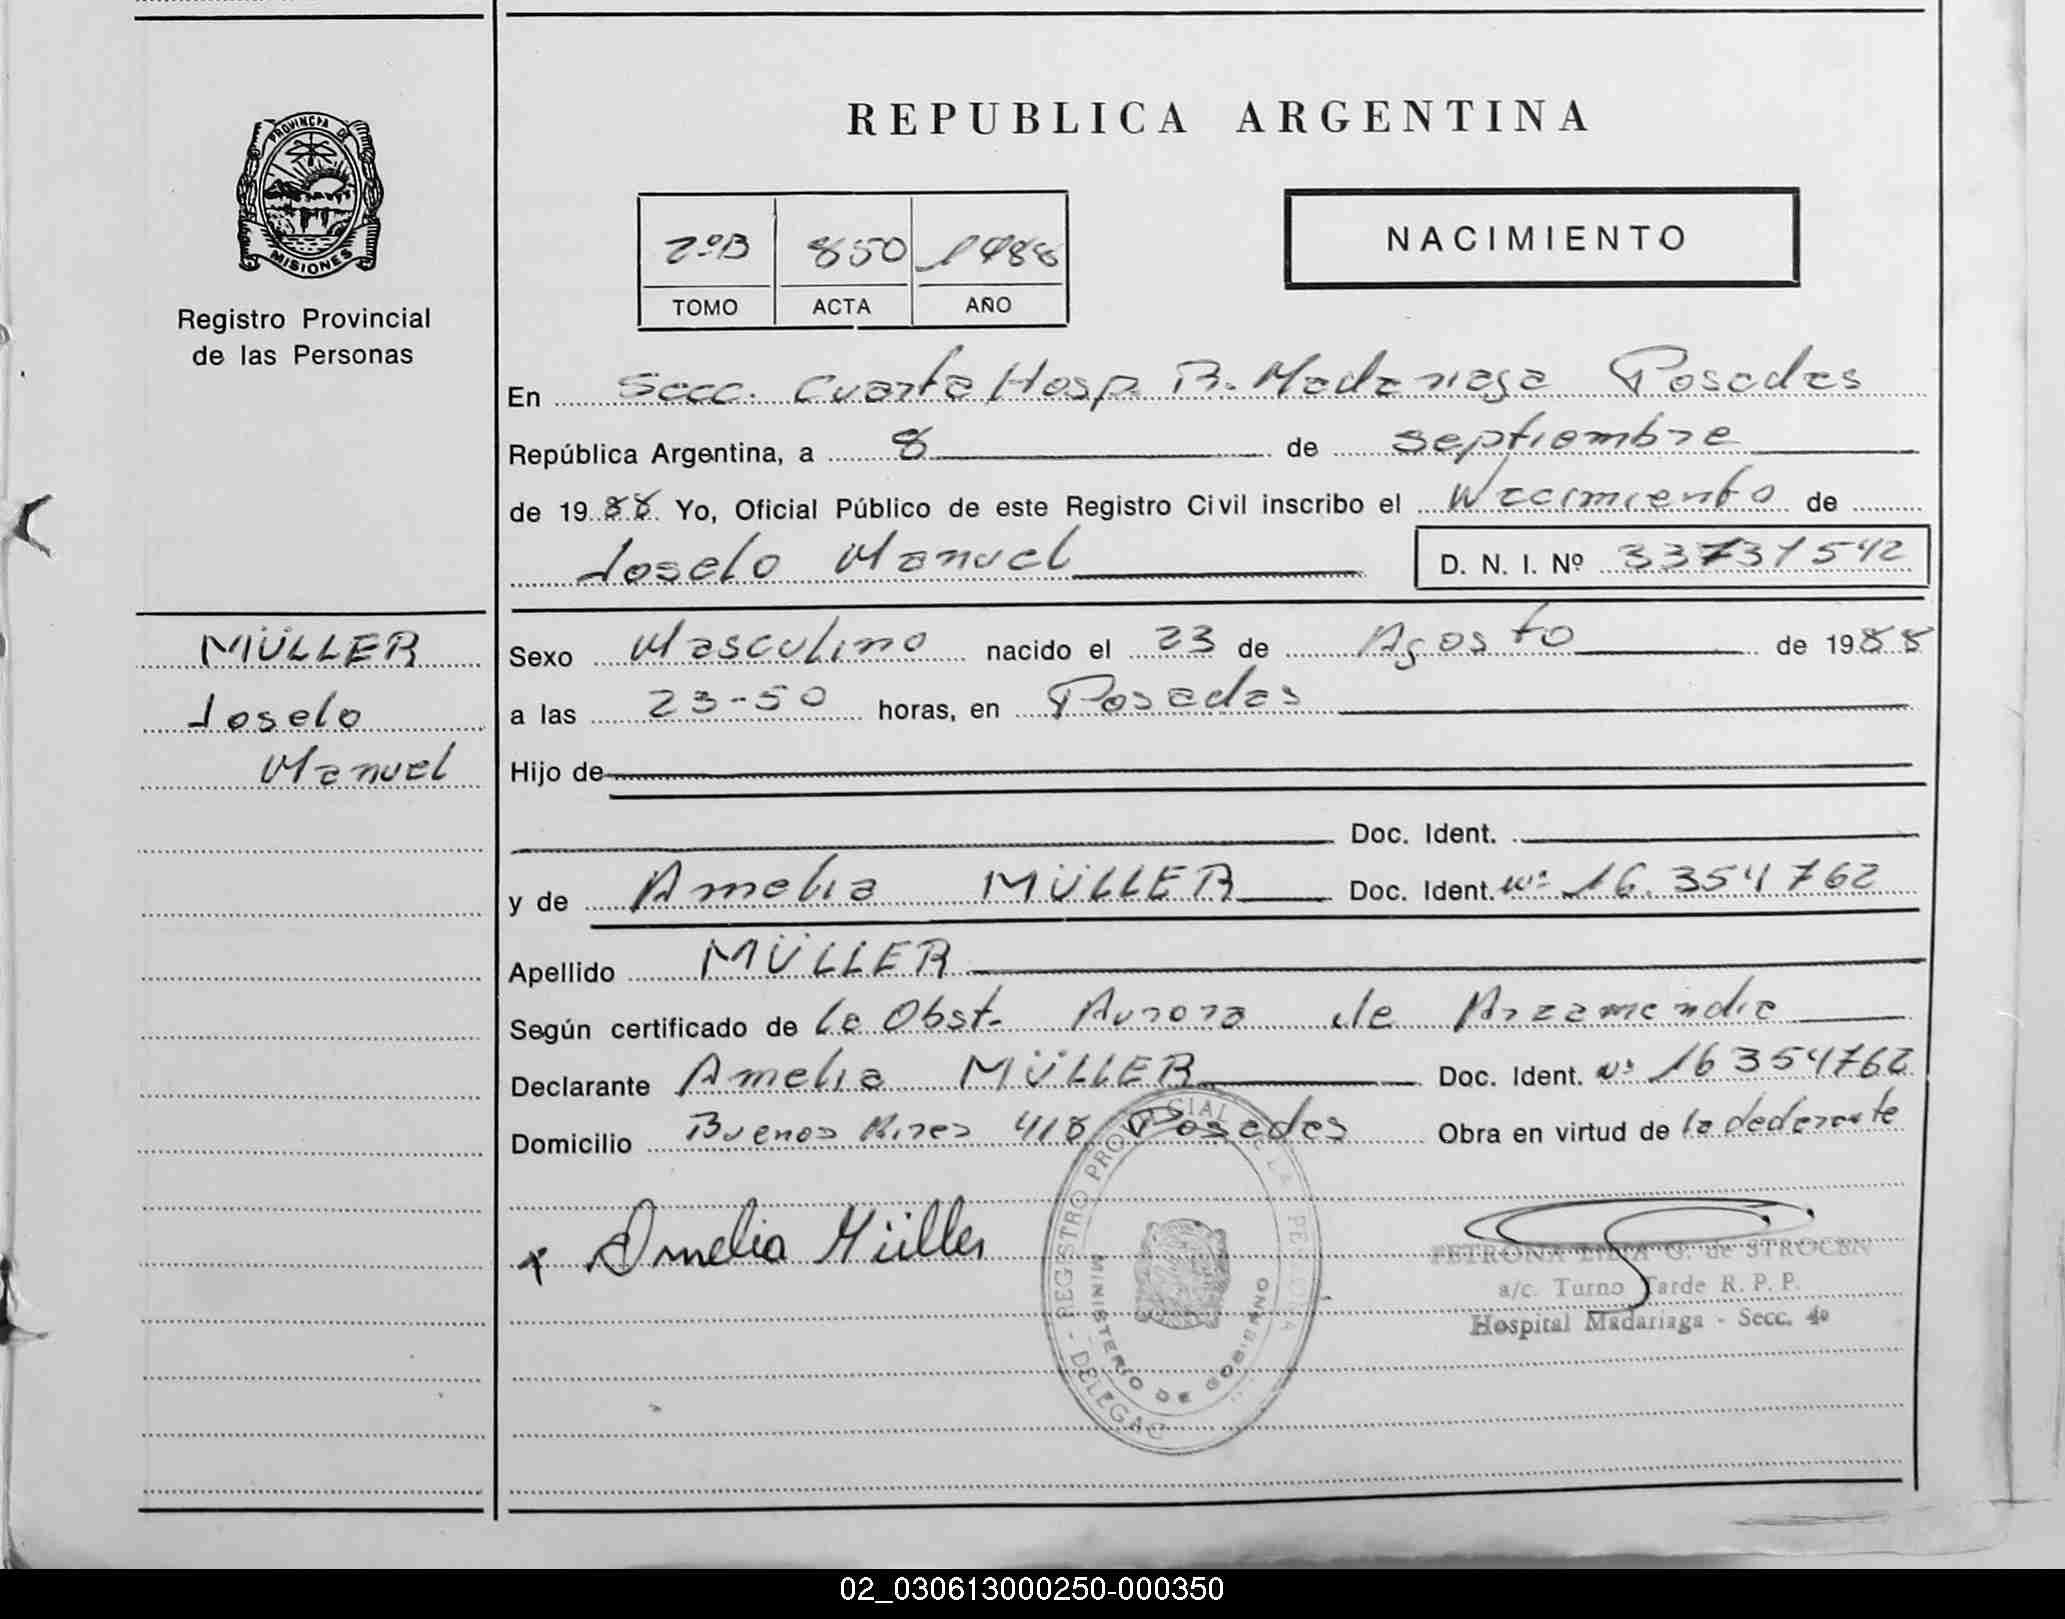 PROVINCIA DE
MISIONES
Registro Provincial
de las Personas
MÜLLER
Joselo
Manuel
REPUBLICA ARGENTINA
2ºB 850 1988
TOMO ACTA AÑO
NACIMIENTO
En Secc. Cuarta Hosp. R. Madariaga Posadas
República Argentina, a 8 de septiembre
de 1988 Yo, Oficial Público de este Registro Civil inscribo el Nacimiento de
Joselo Manuel D. N. I. Nº 33731542
Sexo Masculino nacido el 23 de Agosto de 1988
a las 23-50 horas, en Posadas
Hijo de
Doc. Ident.
y de Amelia MÜLLER Doc. Ident. Nº 16.354762
Apellido MÜLLER
Según certificado de la Obst. Aurora de Arzamendia
Declarante Amelia MÜLLER Doc. Ident. Nº 16354762
Domicilio Buenos Aires 418 Posadas Obra en virtud de la declarante
x Amelia Müller
REGISTRO PROVINCIAL DE LA PERSONA - DELEGAC
MINISTERIO DE GOBIERNO
PETRONA LIDIA G. de STROCEN
a/c. Turno Tarde R. P. P.
Hospital Madariaga - Secc. 4º
02_030613000250-000350